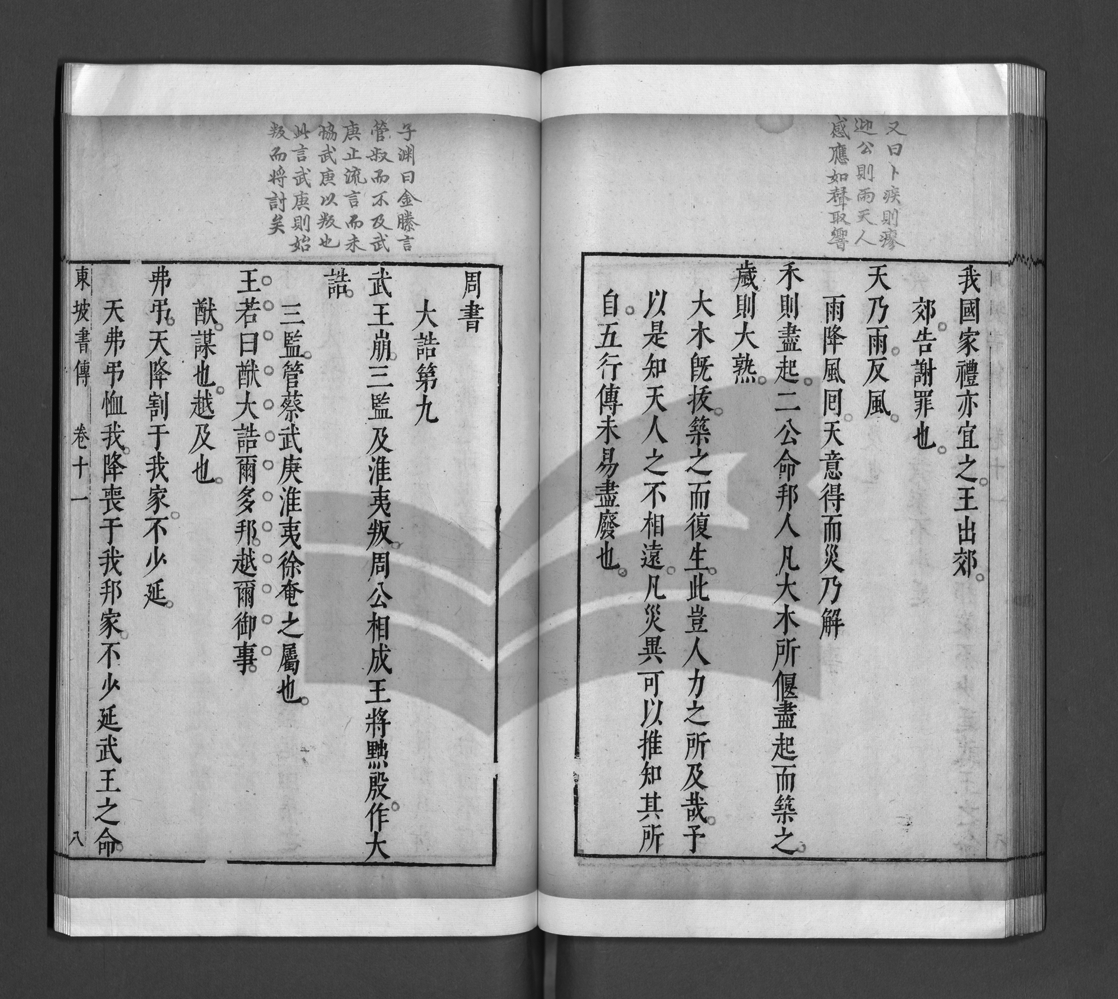 又曰卜疾則瘳
迎公則雨天人
感應如聲取響
我國家禮亦宜之王出郊
郊告謝罪也
天乃雨反風
雨降風囘天意得而災乃解
禾則盡起二公命邦人凡大木所偃盡起而築之
歲則大熟
大木旣拔築之而復生此豈人力之所及哉予
以是知天人之不相遠凡災異可以推知其所
自五行傳未易盡廢也
子淵曰金縢言
管叔而不及武
庚止流言而未
恊武庚以叛也
此言武庚則始
叛而將討矣
周書
大誥第九
武王崩三監及淮夷叛周公相成王將黜殷作大
誥
三監管蔡武庚淮夷徐奄之屬也
王若曰猷大誥爾多邦越爾御事
猷謀也越及也
弗弔天降割于我家不少延
天弗弔恤我降喪于我邦家不少延武王之命
東坡書傳 卷十一 八